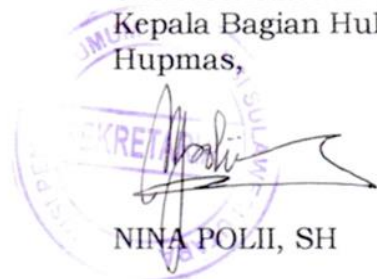 Kepala Bagian Huk
Hupmas,
SEKRETARI
NINA POLII, SH